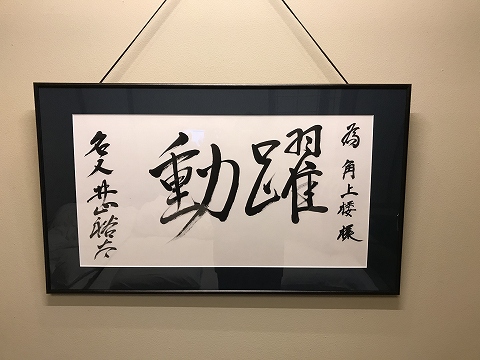 為 角上楼様
躍動
名人 井山裕太